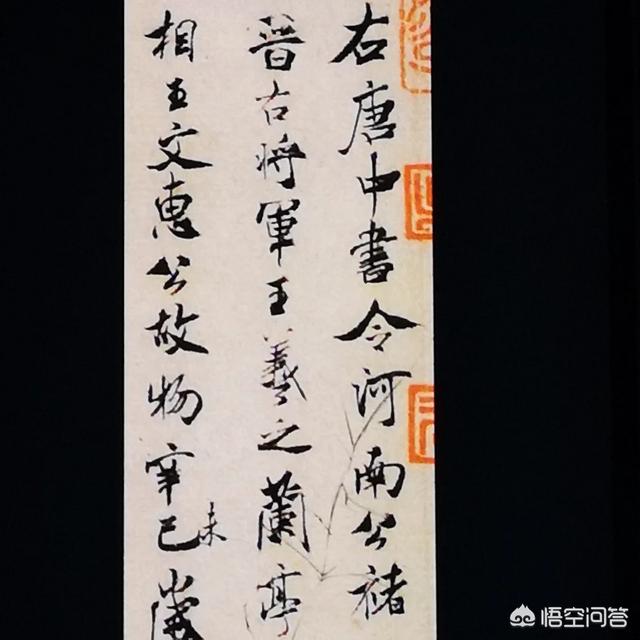 右唐中書令河南公褚
晉右將軍王羲之蘭亭
相王文惠公故物辛巳歲
未
悟空问答